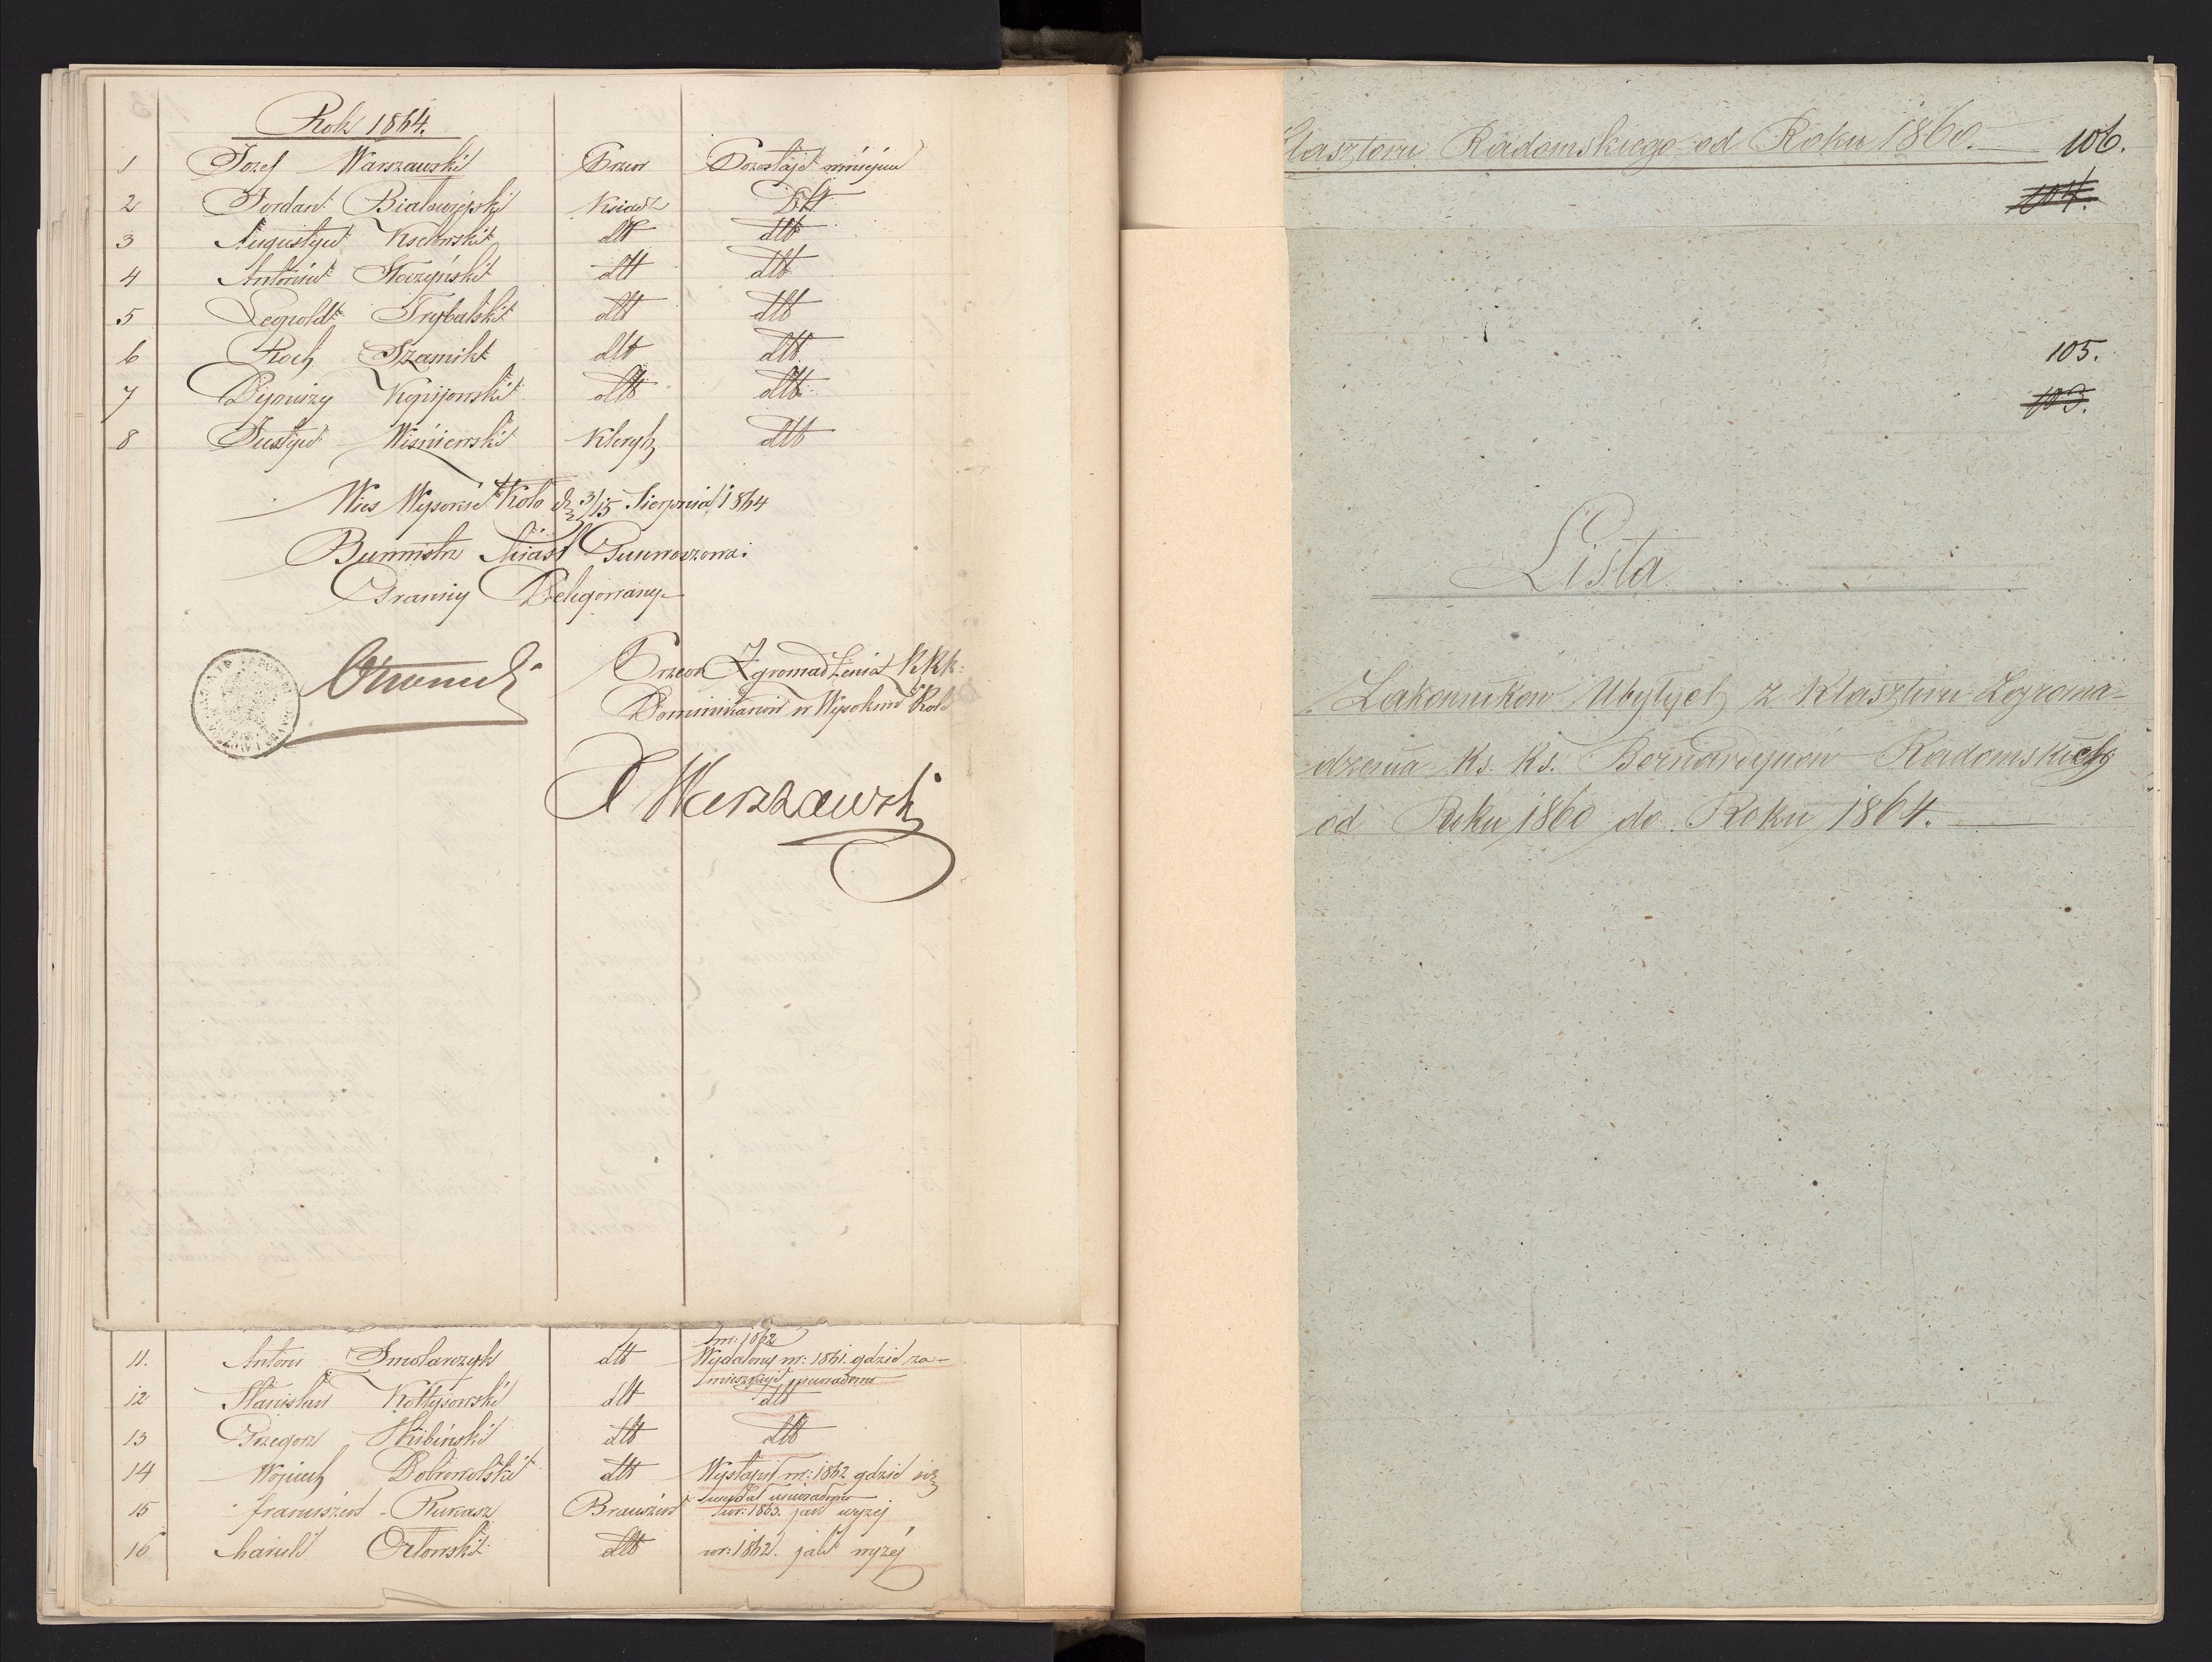 Rok 1864.
1 Jozef Warszawski Przeor Pozostaje w miejscu
2 Jordan Białowiejski Ksiądz dtt
3 Augustyn dtt dtt
4 Antoni dtt dtt
5 Leopold Trybalski dtt dtt
6 Roch Szamik dtt dtt
7 Dyonizy dtt dtt
8 Justyn Wiśniewski Kleryk dtt
Wies Wysokie Koło d. 3/15 Sierpnia 1864
Burmistrz Miasta
Delegowany
Przeor Zgromadzenia KKk:
Dominikanów w Wysokim Kole
J Warszawski
w r: 1862
11. Antoni Smolarczyk dtt Wydalony w r: 1861. gdzie za-
mieszkuje niewiadomo
12 Stanisław dtt dtt
13 Grzegorz Skibiński dtt dtt
14 Wojciech Dobrowolski dtt Wystąpił w r: 1862 gdzie się
udał niewiadomo
15 franciszek Łukasz Braciszek w r: 1863. jak wyżej
16 Orłowski dtt w r: 1862. jak wyżej
Klasztoru Radomskiego od Roku 1860. 106.
104.
105.
103.
Lista
Zakonników Ubyłych z Klasztoru Zgroma-
dzenia Ks. Ks. Bernardynów Radomskich
od Roku 1860 do Roku 1864.